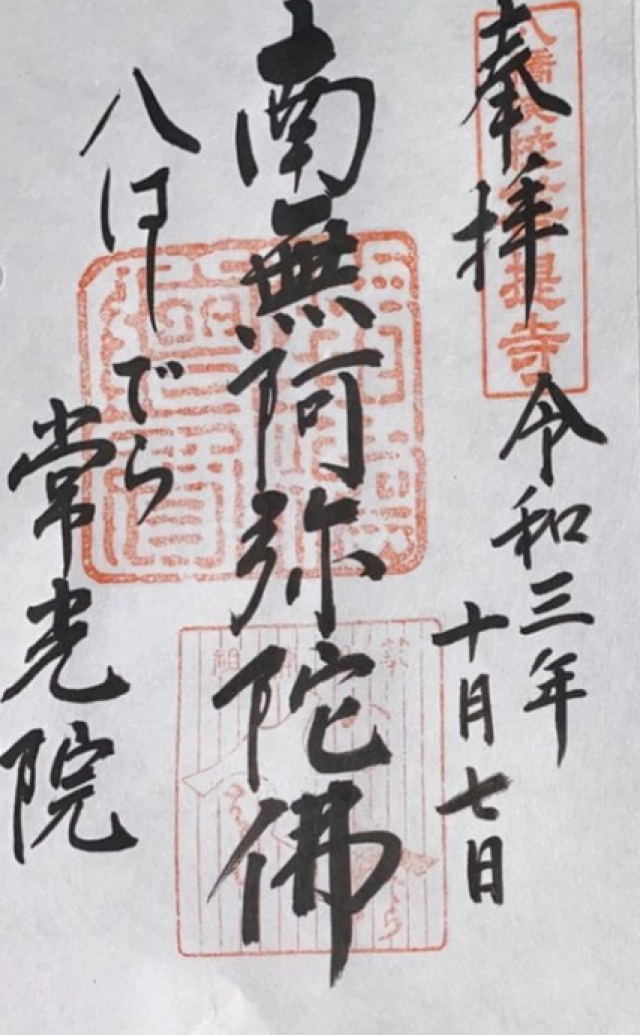 奉拝
八橋検校菩提寺
令和三年
十月七日
南無阿弥陀佛
八はしでら
常光院